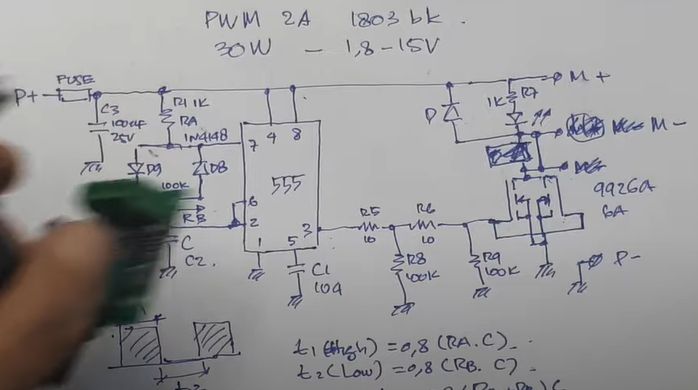 PWM 2A 1803 bk.
30W - 1,8-15V
FUSE
P+
M+
C3
100uF
25V
R1 1K
RA
1N4148
D9
D8
100K
RB
C
C2.
7
4
8
555
6
2
3
1
5
C1
104
R5
10
R6
10
R8
100K
R9
100K
D
1K
R7
M-
9926A
6A
P-
t1 (High) = 0,8 (RA. C).
t2 (Low) = 0,8 (RB. C).